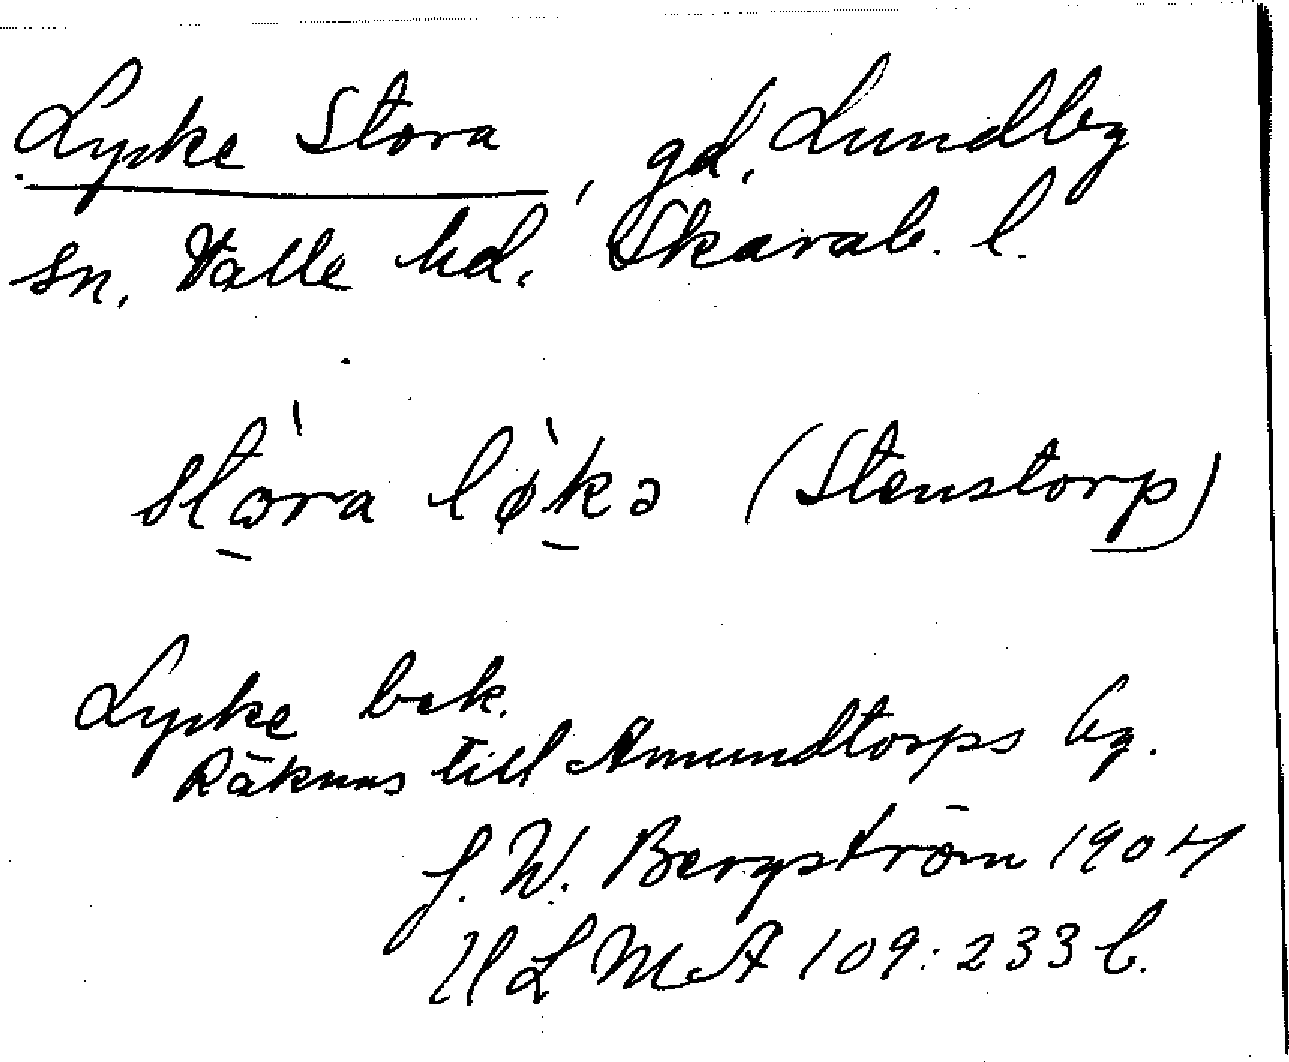 Lycke Stora, gd, Lundby
sn, Valle hd, Skarab. l.
stὼ̠ra lø̠̀kə (Stenstorp)
Lycke bek.
Räknas till Amundtorps by.
J. W. Bergström 1904
ULMA 109:233 b.